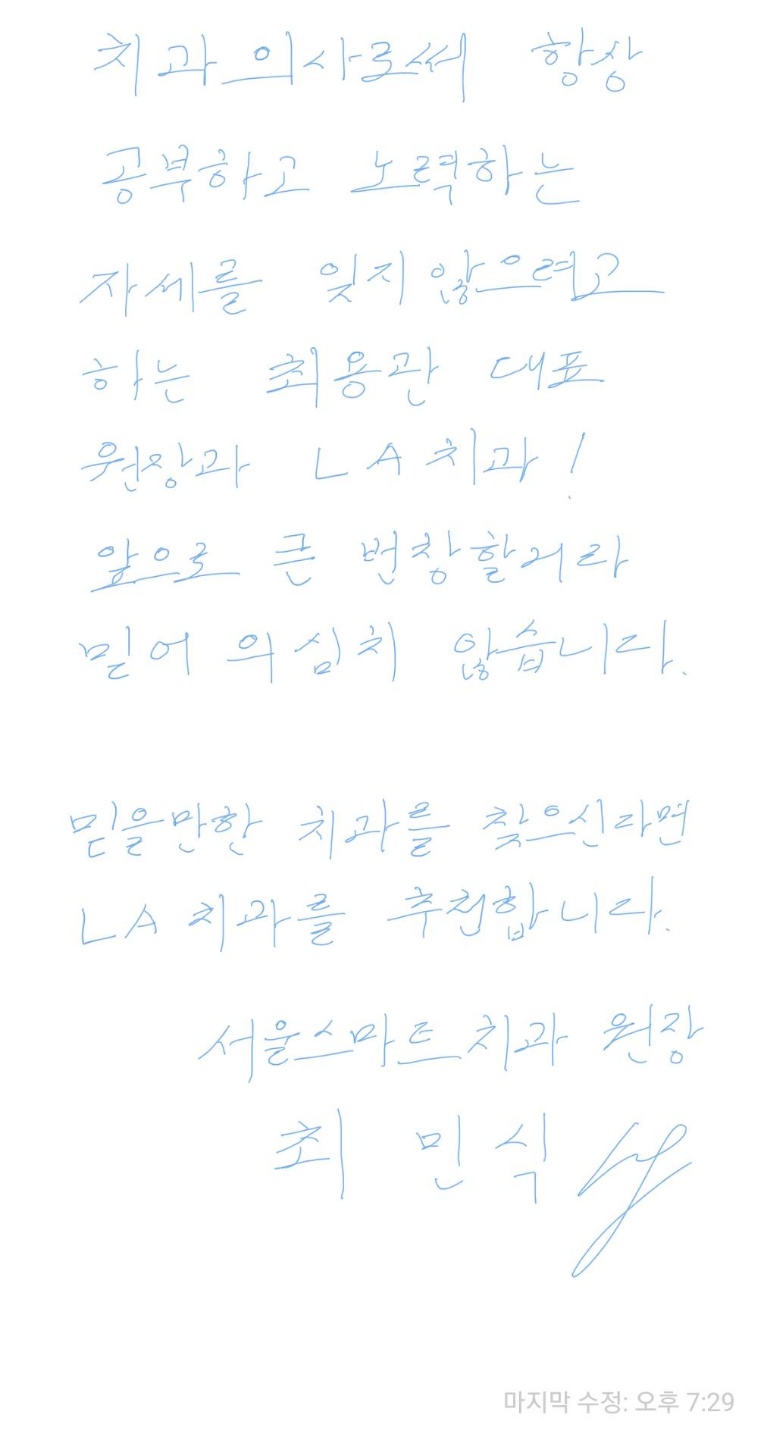 치과의사로써 항상
공부하고 노력하는
자세를 잊지않으려고
하는 최용관 대표
원장과 LA치과!
앞으로 큰 번창할거라
믿어 의심치 않습니다.
믿을만한 치과를 찾으신다면
LA치과를 추천합니다.
서울스마트치과 원장
최민식
마지막 수정: 오후 7:29